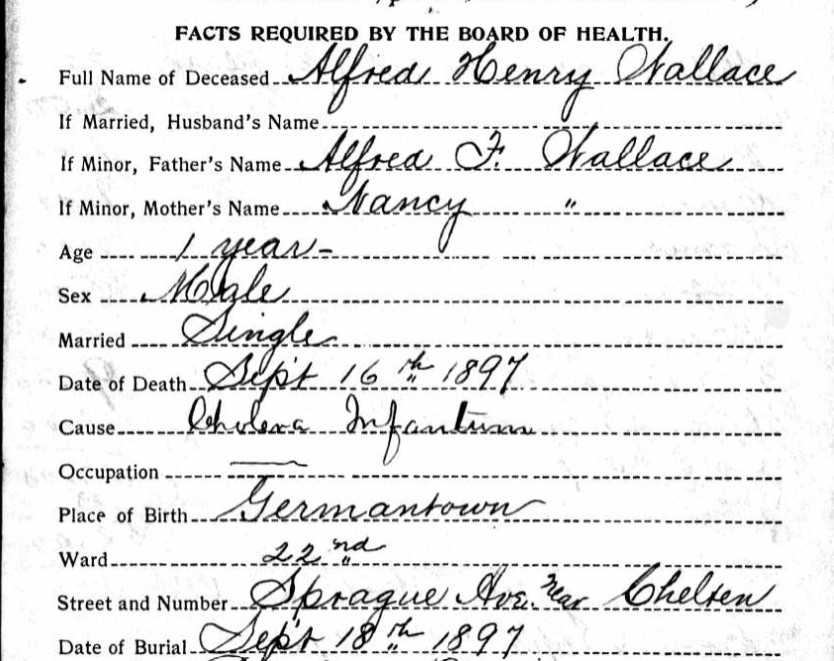 FACTS REQUIRED BY THE BOARD OF HEALTH.
Full Name of Deceased Alfred Henry Wallace
If Married, Husband's Name
If Minor, Father's Name Alfred F. Wallace
If Minor, Mother's Name Nancy "
Age 1 year
Sex Male
Married Single
Date of Death Sept 16th 1897
Cause Cholera Infantum
Occupation —
Place of Birth Germantown
Ward 22nd
Street and Number Sprague Ave. near Chelten
Date of Burial Sept 18th 1897